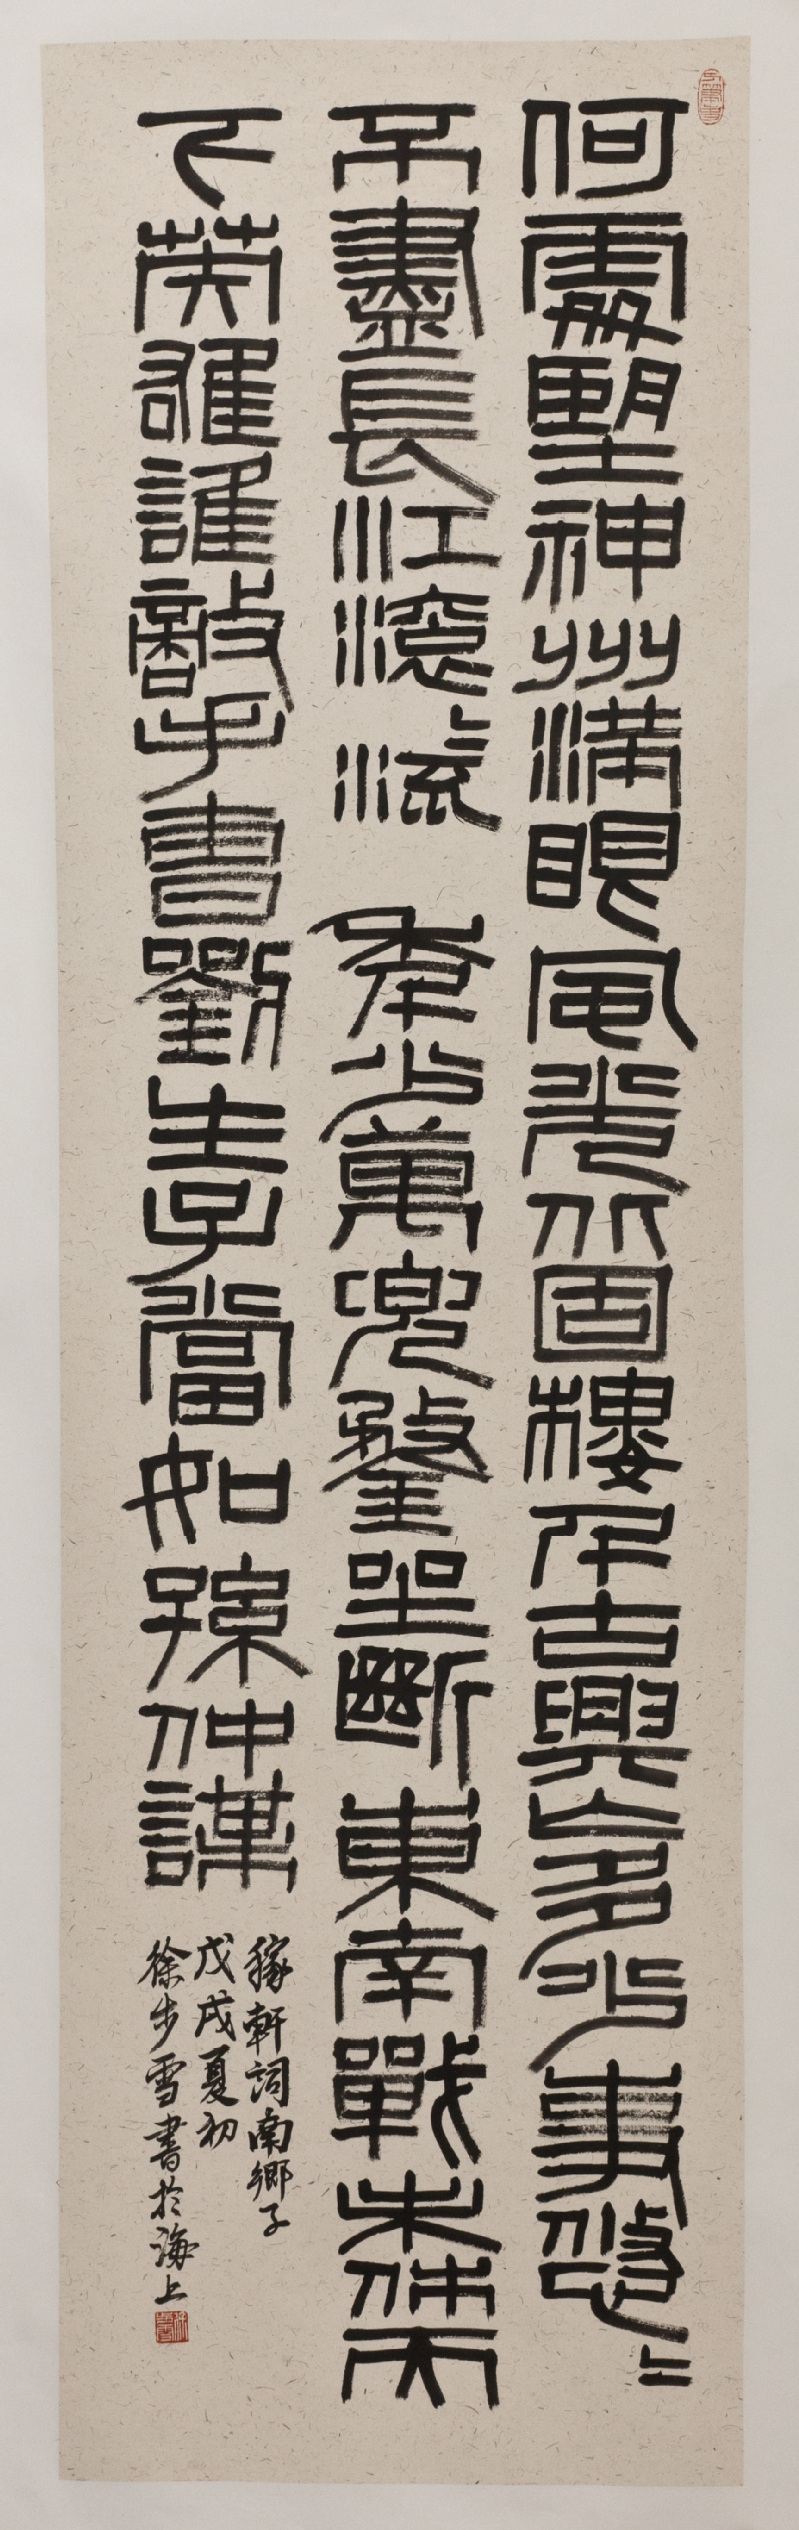 何處望神州滿眼風光北固樓千古興亡多少事悠〻
不盡長江滾〻流年少萬兜鍪坐斷東南戰未休天
下英雄誰敵手曹劉生子當如孫仲謀
稼軒詞南鄉子
戊戌夏初
徐步雪書於海上